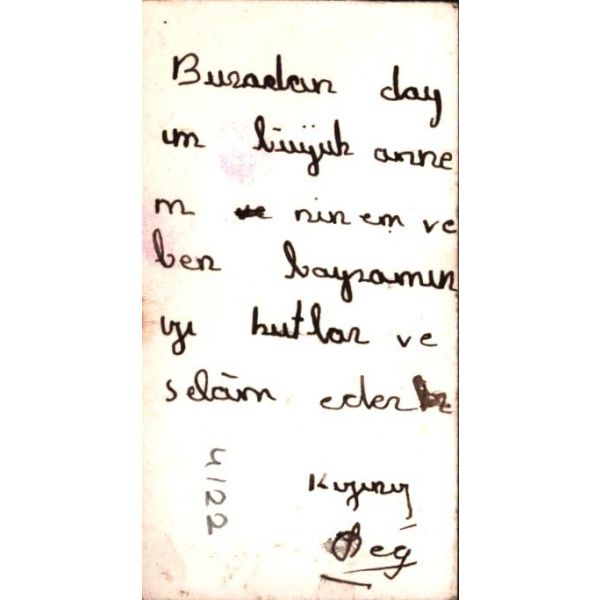 Buradan day
ım büyük anne
m ve ninem ve
ben bayramın
ızı kutlar ve
selâm eder
Kızınız
4122